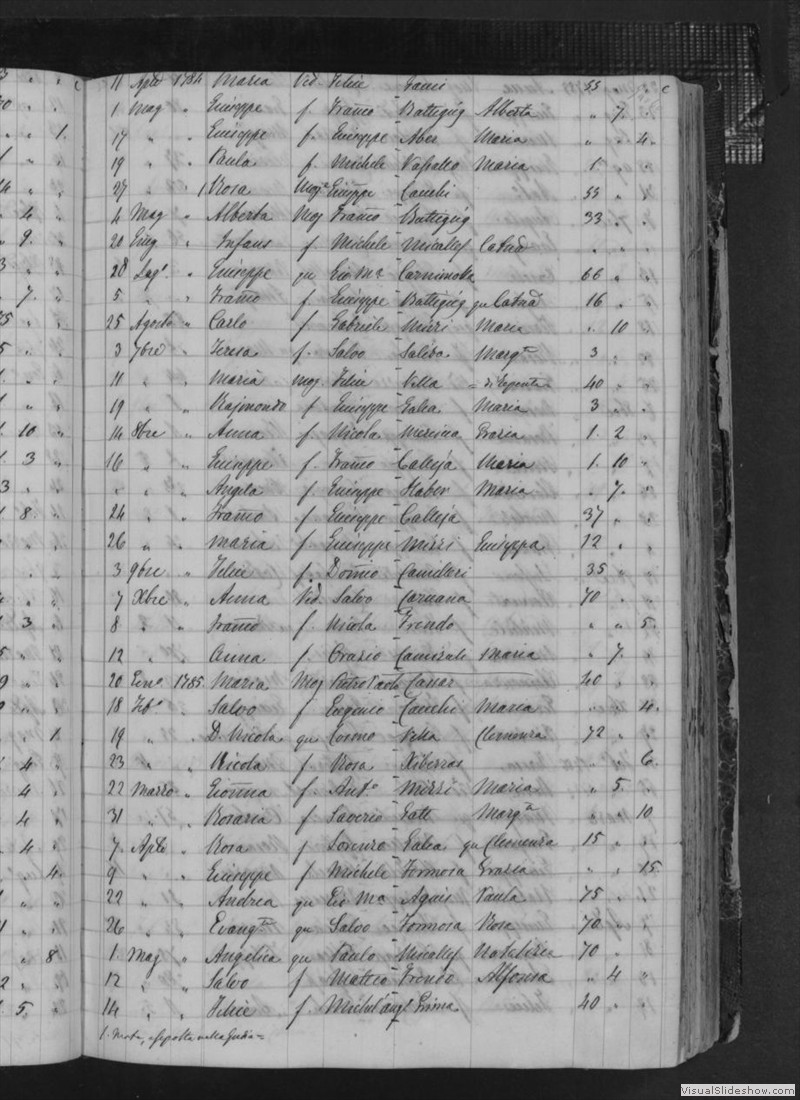 11 Aple 1784 Maria Vid. Felice 55 " "
1 Mag " Giuseppe f. Franco Battigieg Alberta " 7 "
17 " " Giuseppe f. Giuseppe Aber Maria " " 4
19 " " Paula f. Michele Vassallo Maria 1 "
27 " " 1 Rosa Mog.e Giuseppe Cauchi 55 " "
4 Mag " Alberta Mog Franco Battigieg 33 " "
20 Giug " Infans f Michele Micallef Catna " " "
28 Lug.o " Giuseppe qu Gio Ma. 66 " "
5 " " Franco f Giuseppe Battigieg qu Catna 16 " "
25 Agosto " Carlo f Gabriele Mizzi Maria " 10
3 7bre " Teresa f. Salvo Saliba Marg.ta 3 " "
11 " " Maria mog. Felice Vella = di Repente 40 " "
19 " " Rajmondo f Giuseppe Galea Maria 3 "
14 8bre " Anna f Nicola Mercieca Grazia 1. 2 "
16 " " Giuseppe f. Franco Calleja Maria 1. 10 "
" " " Angela f Giuseppe Haber Maria " 7. "
24 " " Franco f Giuseppe Calleja 37 " "
26 " " Maria f. Giuseppe Mizzi Giuseppa 12 " "
3 9bre " Felice f. Domco Camilleri 35 " "
7 Xbre " Anna Vid. Salvo Caruana 70 " "
8 " " Franco f. Nicola Frendo " " 5.
12 " " Anna f. Orazio Maria " 7. "
20 Geno. 1785. Maria Mog Pietro Paolo Cassar 40 " "
18 Feb.o " Salvo f Eugenio Cauchi Maria " " 4.
19 " " D. Nicola qu Cosmo Vella Clemenza 72 " "
23 " " Nicola f Rosa Xiberras " " 6.
22 Marzo " Gionna f. Ant.o Mizzi Maria " 5. "
31 " " Rosaria f Saverio Gatt Marg.ta " " 10
7. Aple " Rosa f Lorenzo Galea qu Clemenza 15 " "
9 " " Giuseppe f Michele Formosa Grazia " " 15.
22 " " Andrea qu Gio Ma. Agius Paula 75 " "
26 " " Evang.ta qu Salvo Formosa Rosa 70 " "
1. Mag " Angelica qu Paulo Micallef 70 " "
12 " " Salvo f Matteo Frendo Alfonsa " 4 "
14 " " Felice f. Michel'ang.o Grima 40 " "
1. Morta, e sepolta nella
VisualSlideshow.com